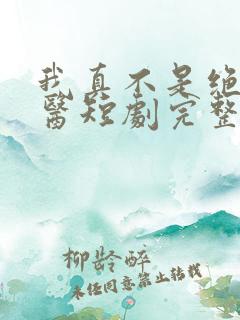 我真不是絕
醫短劇完整
柳龄醉
未经同意禁止转载